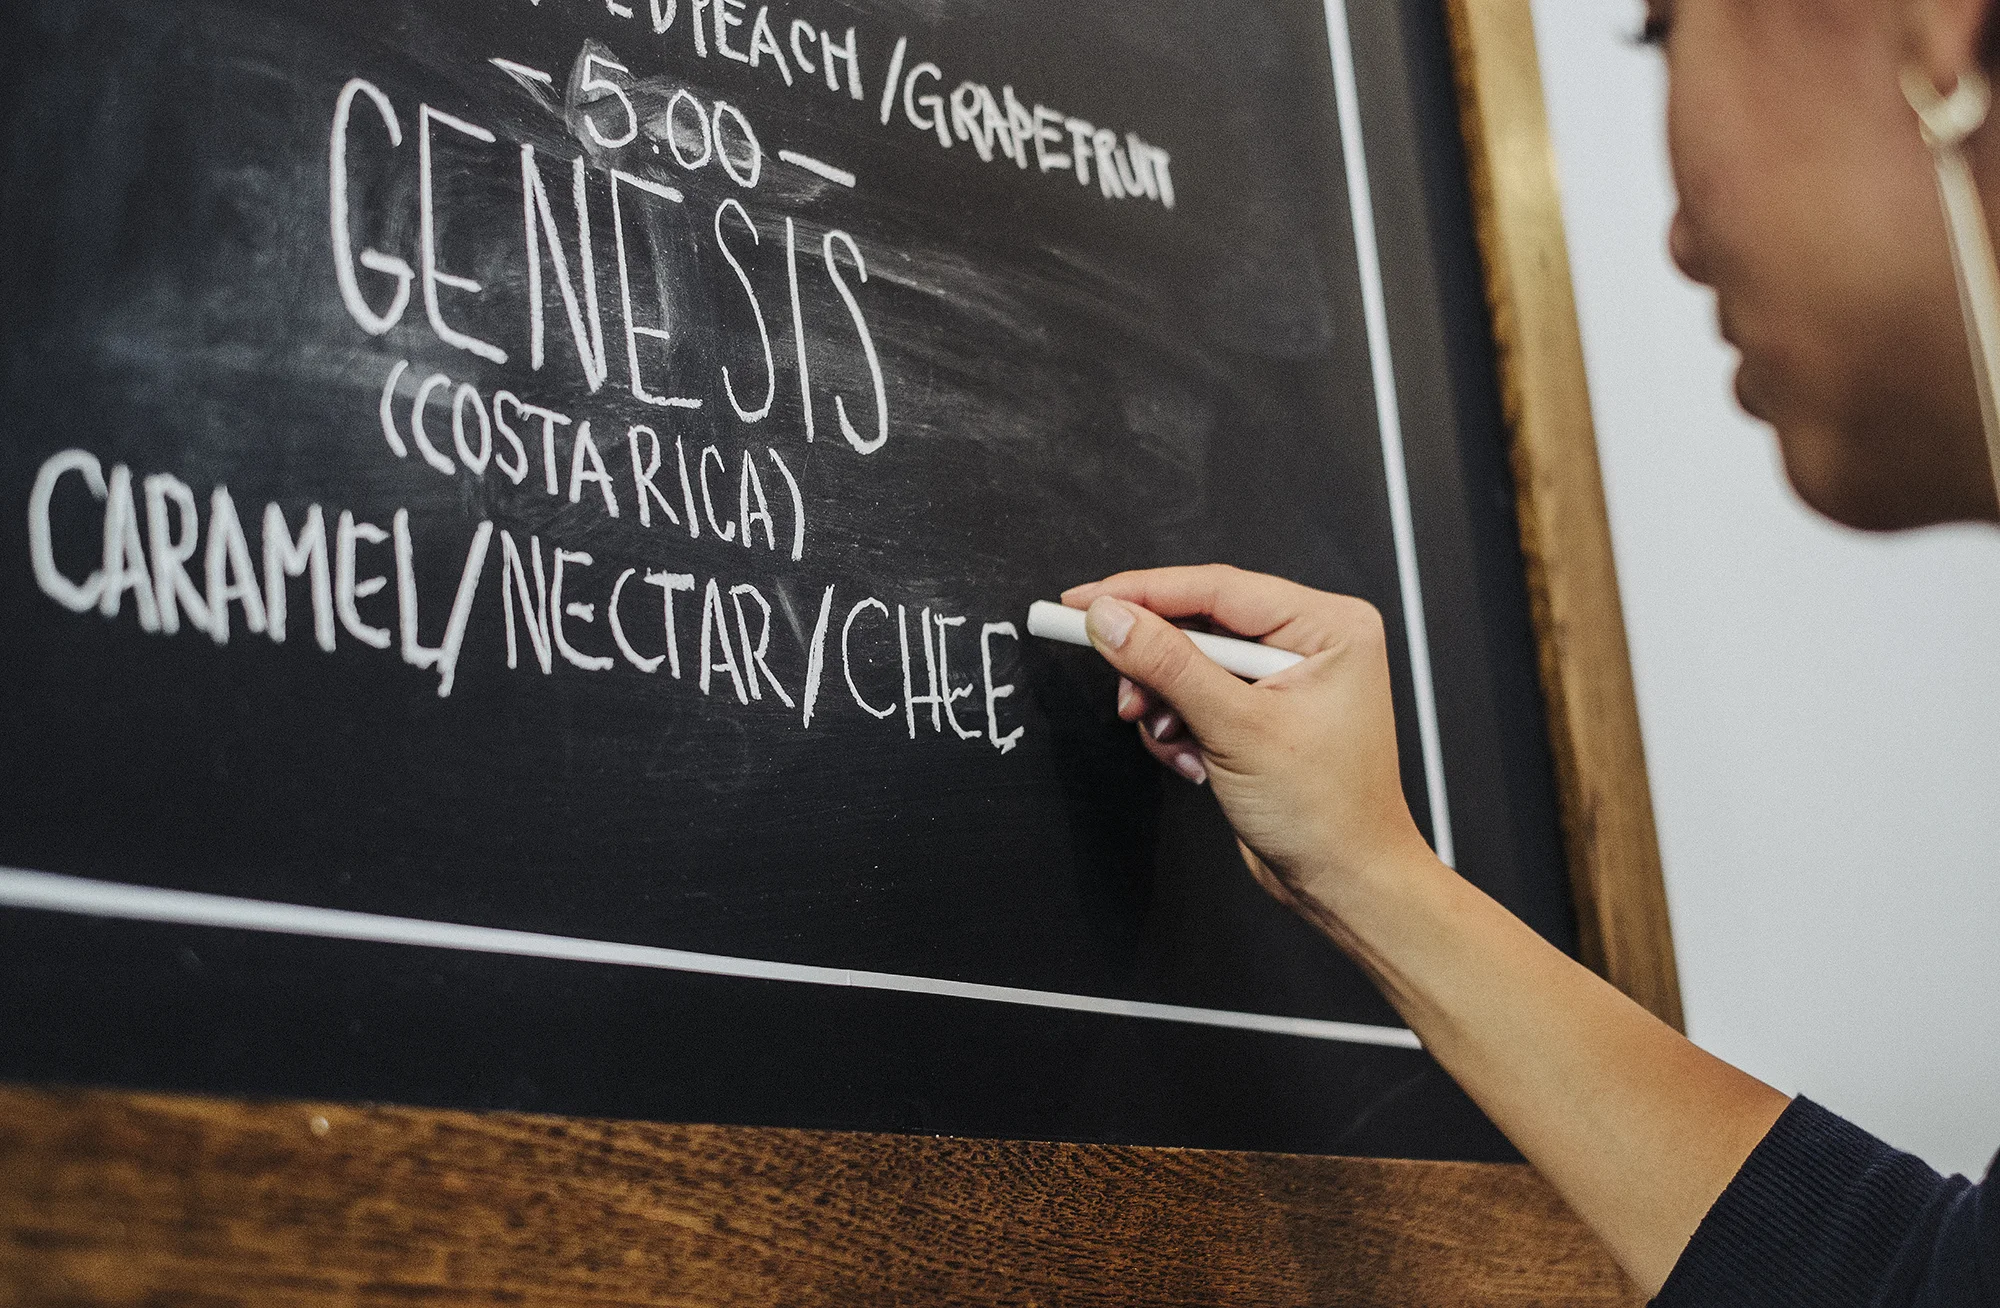 PEACH/GRAPEFRUIT
-5.00-
GENESIS
(COSTA RICA)
CARAMEL/NECTAR/CHEE